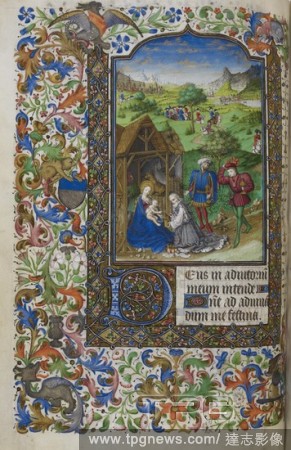 Deus in adiuto:iū
meum intende
D̄ne ad adiuua
dum me festina.
www.tpgnews.com / 達志影像